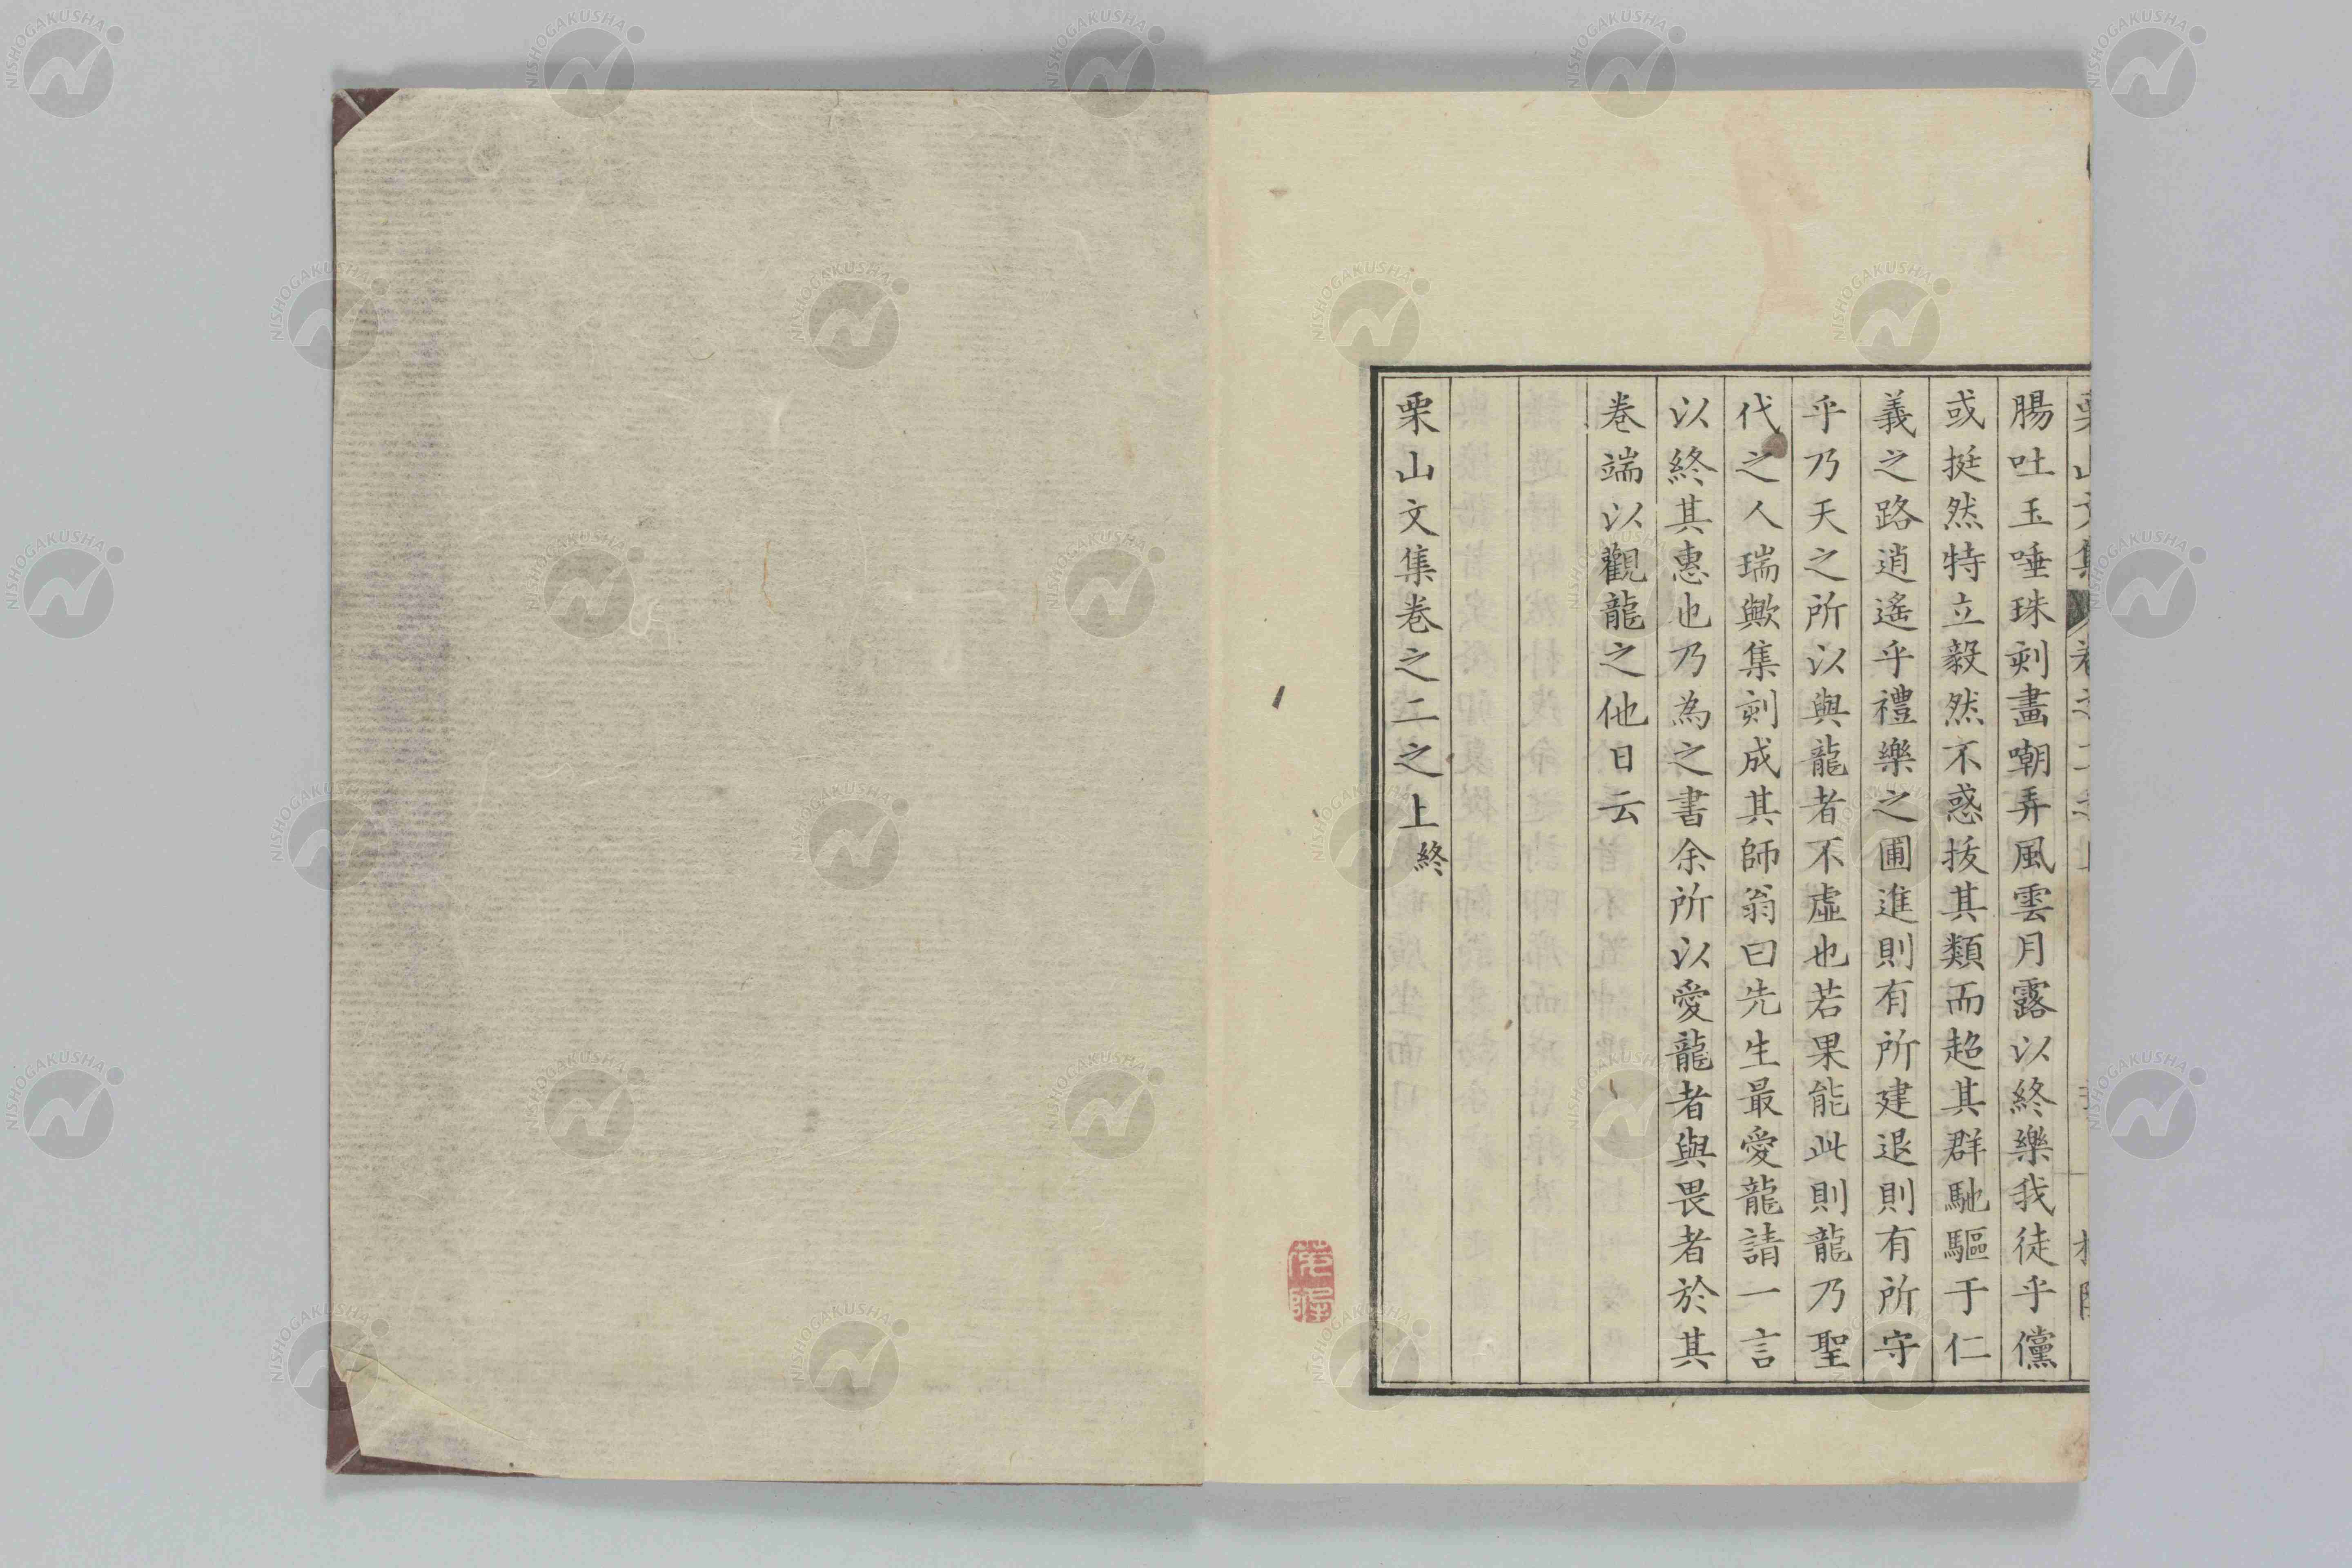 腸吐玉唾珠刻畫嘲弄風雲月露以終樂我徒乎儻
或挺然特立毅然不惑拔其類而超其群馳驅于仁
義之路逍遙乎禮樂之圃進則有所建退則有所守
乎乃天之所以與龍者不虛也若果能此則龍乃聖
代之人瑞歟集刻成其師翁曰先生最愛龍請一言
以終其惠也乃為之書余所以愛龍者與畏者於其
卷端以觀龍之他日云
栗山文集卷之二之上終
NISHOGAKUSHA